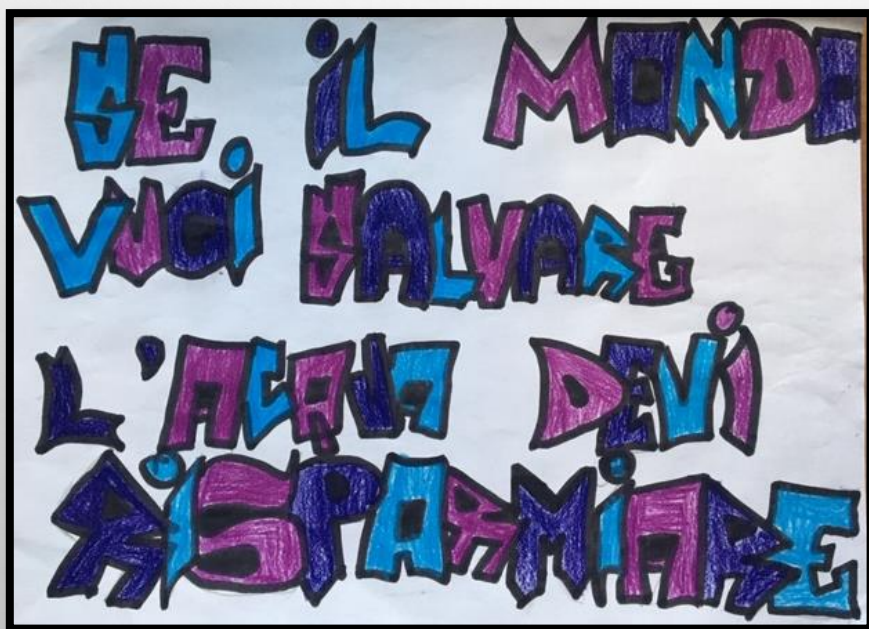 SE iL MONDO
VUOi SALVARE
L'ACQUA DEVi
RiSPARMiARE